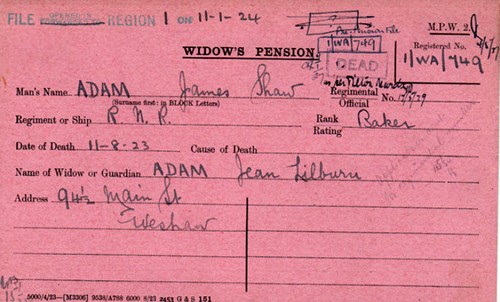 FILE REGION 1 ON 11-1-24
M.P.W. 2.
Pre. Pension File
1/WA/749
DEAD
WIDOW'S PENSION
Registered No.
1/WA/749
Man's Name ADAM James Shaw
(Surname first: in BLOCK Letters)
Regimental No.
Official
Regiment or Ship R.N.R.
Rank Baker
Rating
Date of Death 11-8-23 Cause of Death
Name of Widow or Guardian ADAM Jean Lilburn
Address 94½ Main St
5000/4/23—[M3306] 9538/A788 6000 8/23 2453 G & S 151